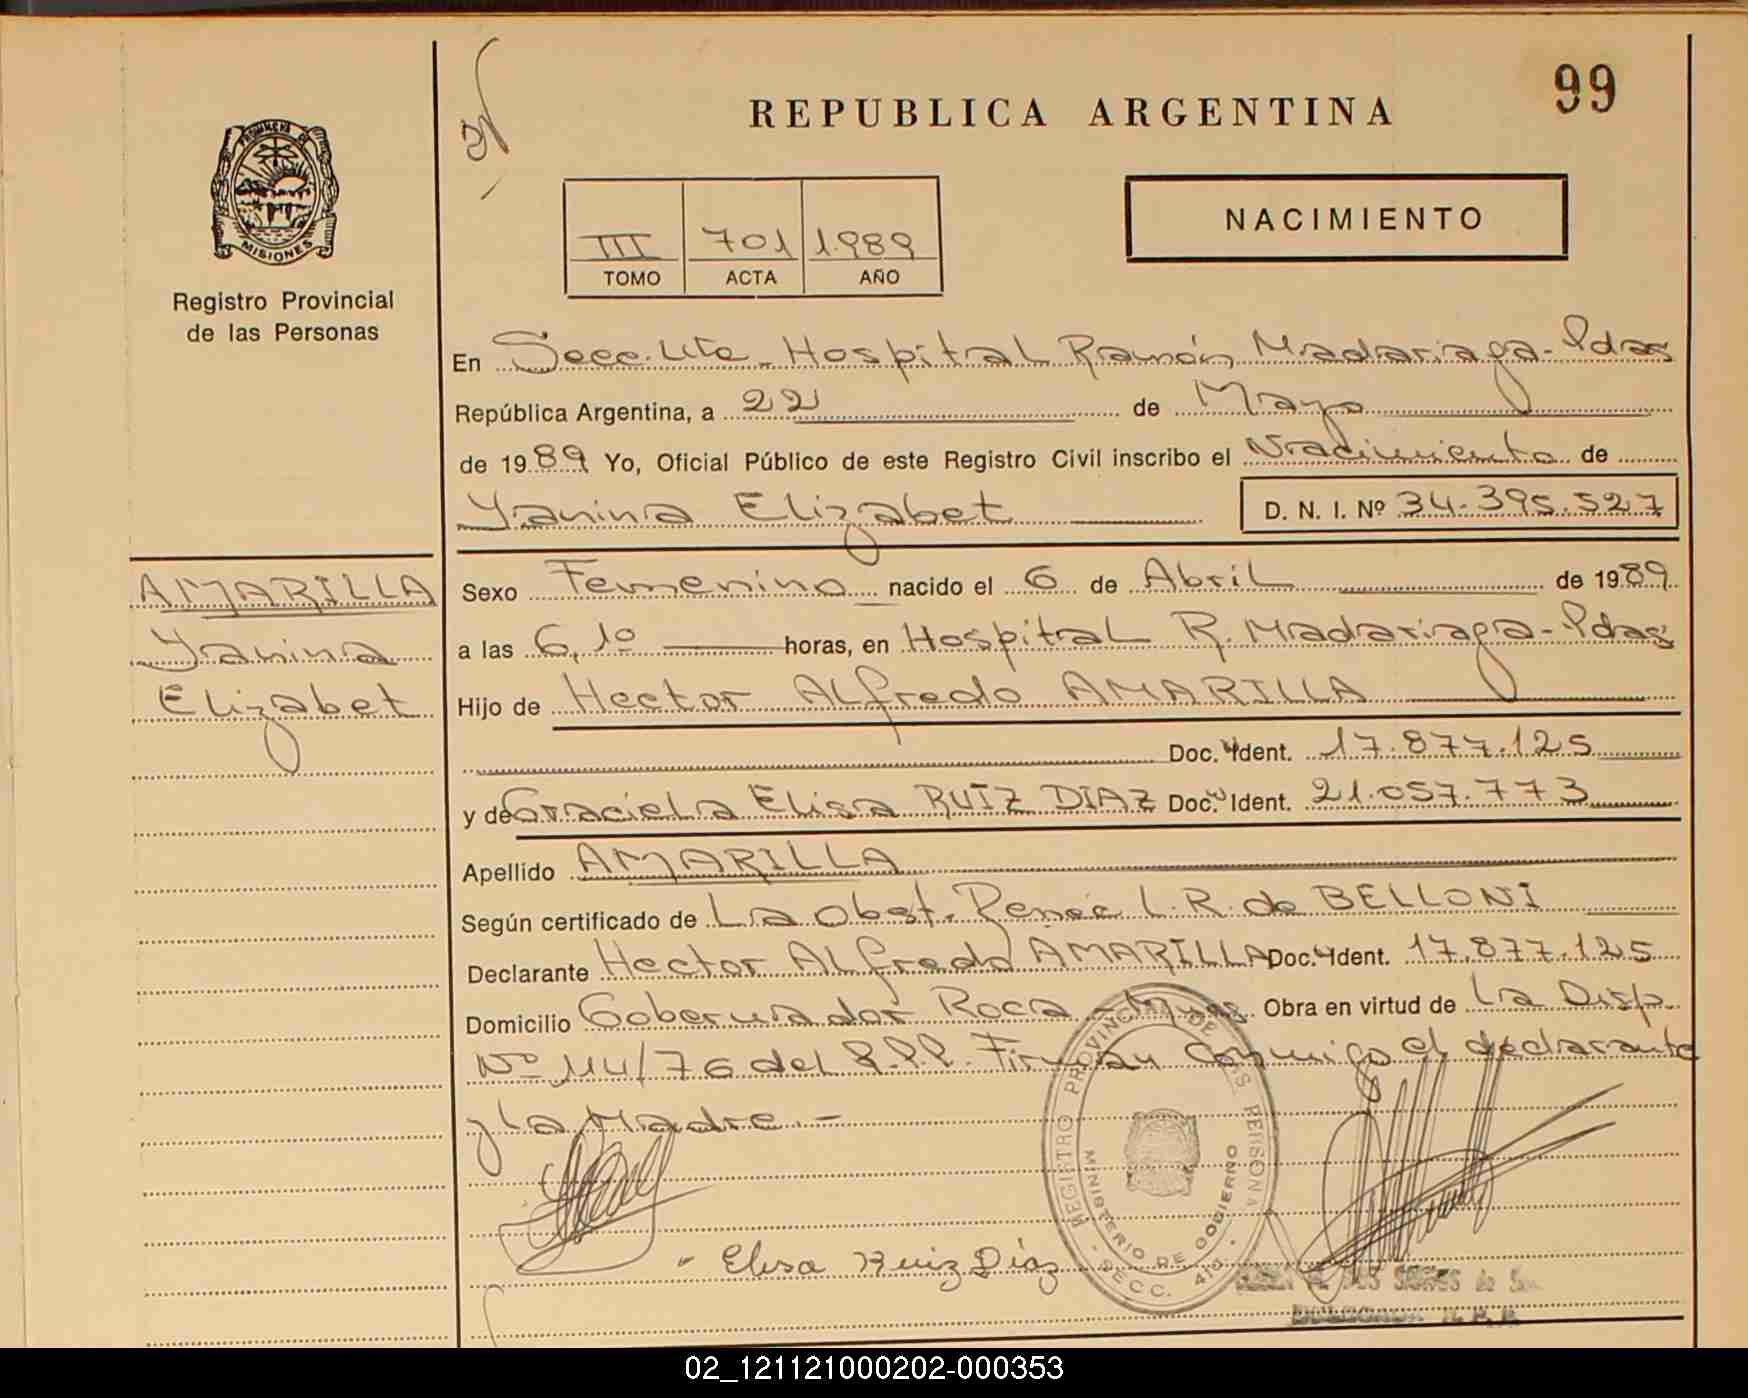 99
REPUBLICA ARGENTINA
NACIMIENTO
III 701 1989
TOMO ACTA AÑO
PROVINCIA DE
MISIONES
Registro Provincial
de las Personas
En Secc. 4ta - Hospital Ramón Madariaga - Pdas
República Argentina, a 22 de Mayo
de 1989 Yo, Oficial Público de este Registro Civil inscribo el Nacimiento de
Yanina Elizabet D. N. I. Nº 34.395.527
AMARILLA
Yanina
Elizabet
Sexo Femenino nacido el 6 de Abril de 1989
a las 6,10 horas, en Hospital R. Madariaga - Pdas
Hijo de Hector Alfredo AMARILLA
Doc. Ident. 17.877.125
y de Graciela Elisa RUIZ DIAZ Doc. Ident. 21.057.773
Apellido AMARILLA
Según certificado de La Obst. Renée L. R. de BELLONI
Declarante Hector Alfredo AMARILLA Doc. Ident. 17.877.125
Domicilio Gobernador Roca - Mnes Obra en virtud de La Disp
Nº 114/76 del R.P.P. Firman conmigo el declarante
y La Madre -
REGISTRO PROVINCIAL DE LAS PERSONAS
MINISTERIO DE GOBIERNO
SECC. 4ta
Elisa Ruiz Díaz
DELEGADA R. P. P.
02_121121000202-000353